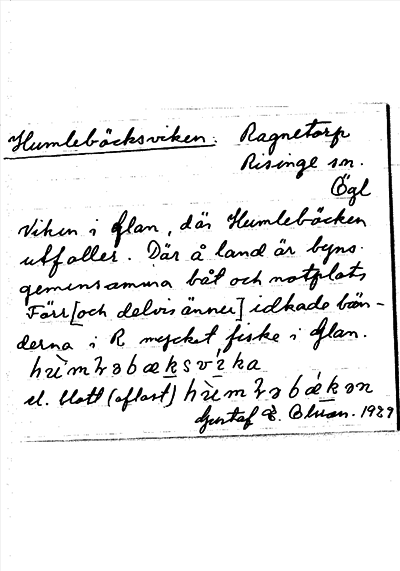 Humlebäcksviken. Ragnetorp
Risinge sn.
Ögl
Viken i Glan, där Humlebäcken
utfaller. Där å land är byns
gemensamma båt och notplats
Förr [och delvis ännu] idkade bön-
derna i R mycket fiske i Glan.
el. blott (oftast)
Gustaf Bluan. 1929